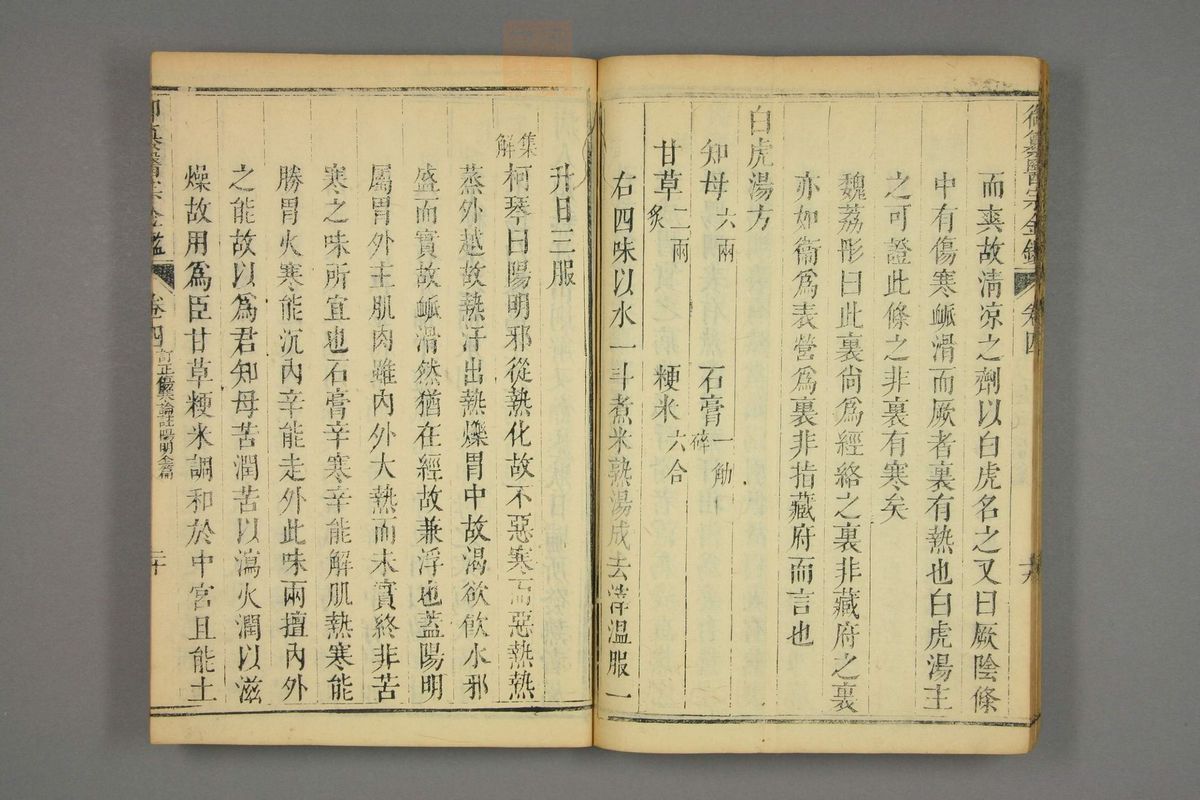 御纂醫宗金鑑 卷四
而爽故清凉之劑以白虎名之又曰厥陰條
中有傷寒衇滑而厥者裏有熱也白虎湯主
之可證此條之非裏有寒矣
魏荔彤曰此裏尙爲經絡之裏非藏府之裏
亦如衞爲表營爲裏非指藏府而言也
白虎湯方
知母六兩 石膏一觔碎
甘草二兩炙 粳米六合
右四味以水一斗煮米熟湯成去滓温服一
升日三服
集解柯琴曰陽明邪從熱化故不惡寒而惡熱熱
蒸外越故熱汗出熱爍胃中故渴欲飮水邪
盛而實故衇滑然猶在經故兼浮也蓋陽明
屬胃外主肌肉雖內外大熱而未實終非苦
寒之味所宜也石膏辛寒辛能解肌熱寒能
勝胃火寒能沉內辛能走外此味兩擅內外
之能故以爲君知母苦潤苦以瀉火潤以滋
燥故用爲臣甘草粳米調和於中宮且能土
御纂醫宗金鑑 卷四 訂正傷寒論註陽明全篇 二十